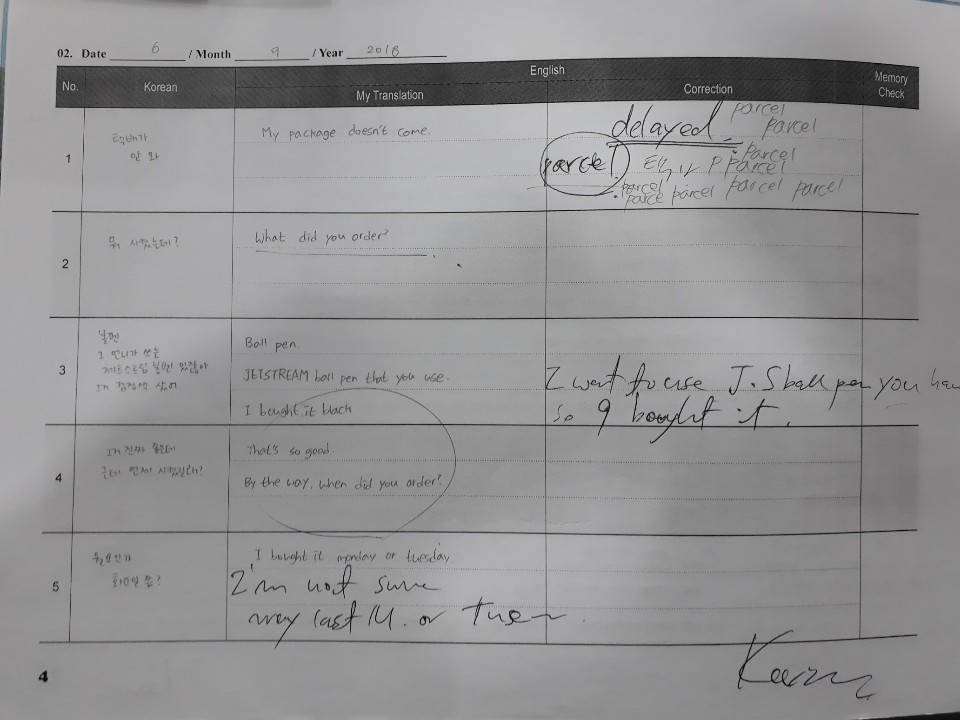 02. Date 6 / Month 9 / Year 2018
No. Korean English Memory Check
My Translation Correction
1
택배가
안 와
My package doesn't come.
delayed parcel
parcel
parcel
parcel parcel
parcel
parce parcel parcel parcel
2
뭐 시켰는데?
What did you order?
3
볼펜
그 언니가 쓰는
제트스트림 볼펜 있잖아
그거 검정색 샀어
Ball pen.
JETSTREAM ball pen that you use.
I bought it black
I want to use J.S ball pen you
so I bought it.
4
그거 진짜 좋은데
근데 언제 시켰길래?
That's so good.
By the way, when did you order?
5
월요일인가
화요일 쯤?
I bought it monday or tuesday
I'm not sure
last M. or tues
4